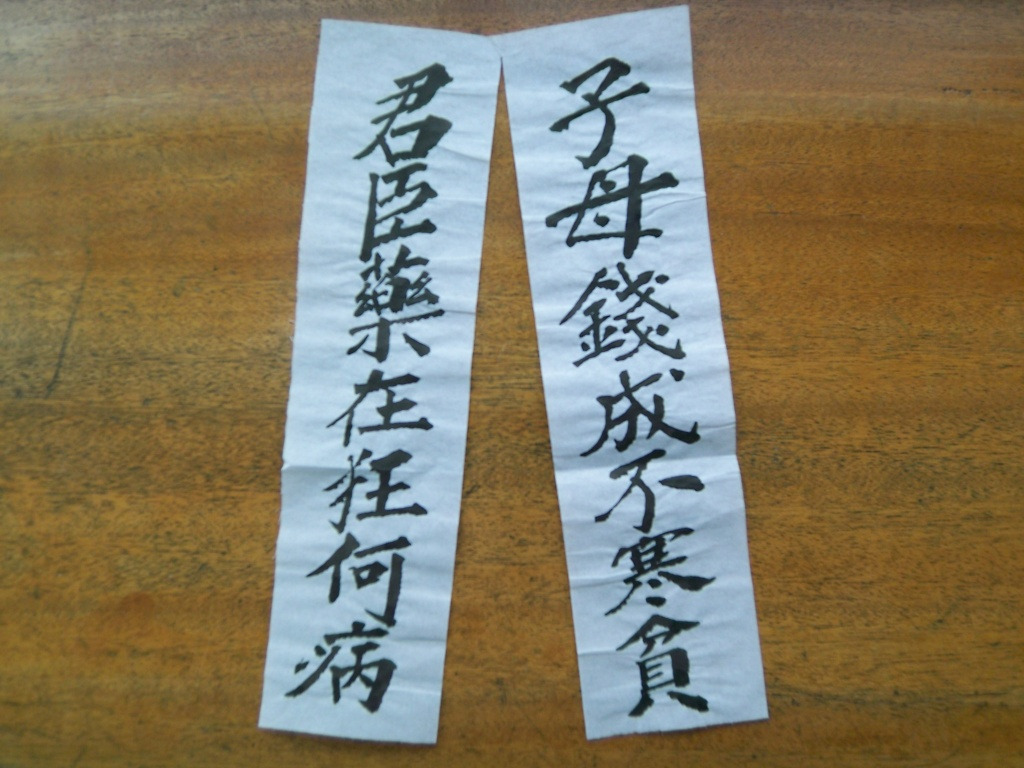 子母錢成不寒貧
君臣藥在狂何病